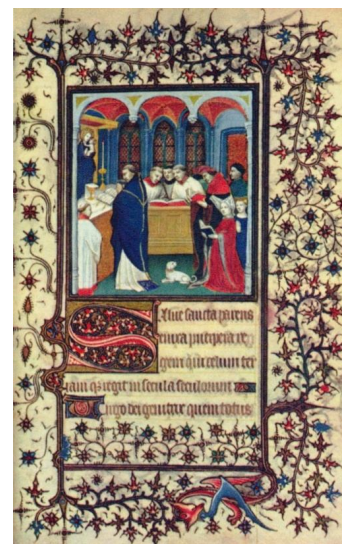 Salve sancta parens
enixa puerpera re
gem qui celum ter
ram q3 regit in secula seculorum
Virgo dei genitrix quem totus